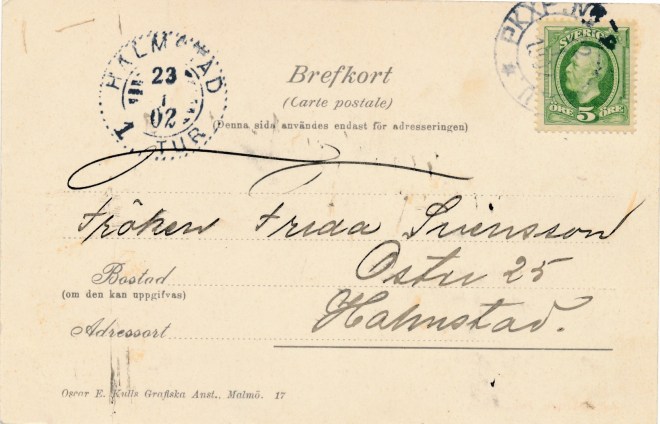 HALMSTAD
23
1
02
1 TUR
PKXP.Nr
SVERIGE
ÖRE 5 ÖRE
Brefkort
(Carte postale)
(Denna sida användes endast för adresseringen)
Fröken Frida Svensson
Bostad
Östra 25
(om den kan uppgifvas)
Halmstad.
Adressort
Oscar E. Kulls Grafiska Anst., Malmö. 17